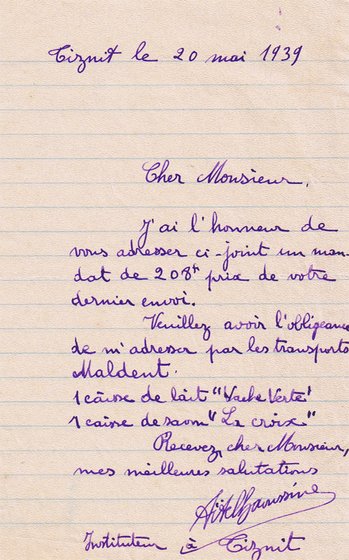 Tiznit le 20 mai 1939
Cher Monsieur,
J'ai l'honneur de
vous adresser ci-joint un man-
dat de 208fr prix de votre
dernier envoi.
Veuillez avoir l'obligeance
de m'adresser par les transports
Maldent.
1 caisse de lait "Vache Verte"
1 caisse de savon "La croix"
Recevez, cher Monsieur,
mes meilleures salutations
Instituteur à Tiznit